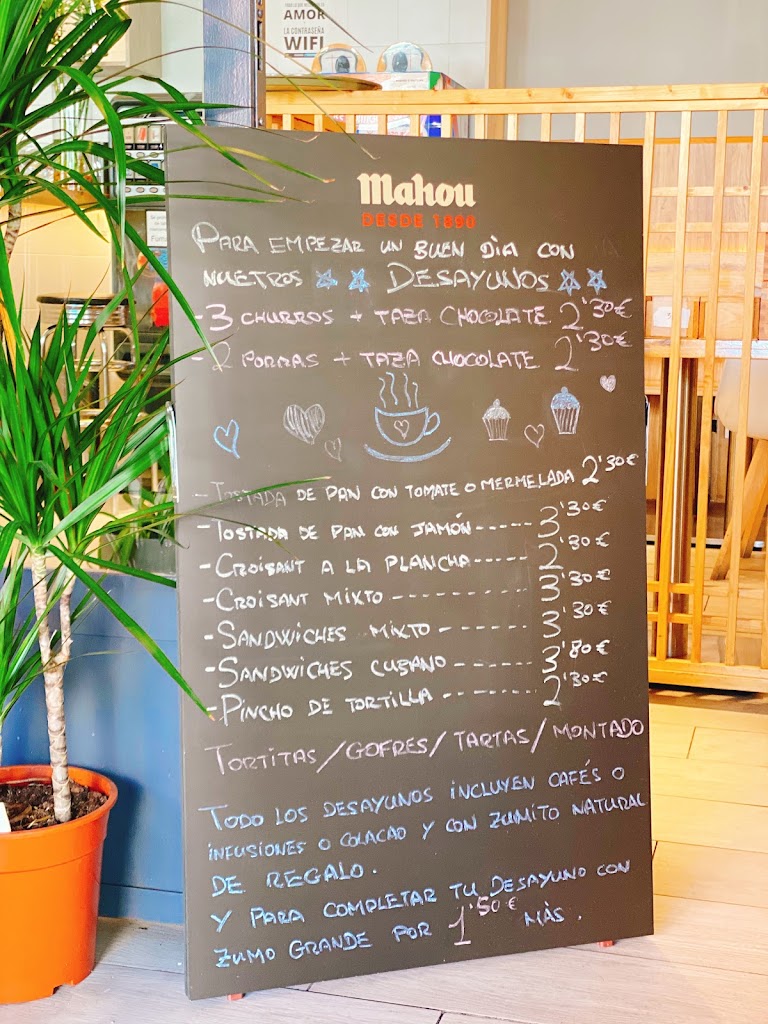 AMOR
LA CONTRASEÑA
WIFI
Mahou
DESDE 1890
PARA EMPEZAR UN BUEN DIA CON
NUETROS DESAYUNOS
- 3 CHURROS + TAZA CHOCOLATE 2'30€
- 2 PORRAS + TAZA CHOCOLATE 2'30€
- TOSTADA DE PAN CON TOMATE O MERMELADA 2'30€
- TOSTADA DE PAN CON JAMÓN ----- 3'30€
- CROISANT A LA PLANCHA ----- 2'30€
- CROISANT MIXTO --------- 3'30€
- SANDWICHES MIXTO ------- 3'30€
- SANDWICHES CUBANO ------ 3'80€
- PINCHO DE TORTILLA ------- 2'30€
TORTITAS/GOFRES/TARTAS/MONTADO
TODO LOS DESAYUNOS INCLUYEN CAFÉS O
INFUSIONES O COLACAO Y CON ZUMITO NATURAL
DE REGALO.
Y PARA COMPLETAR TU DESAYUNO CON
ZUMO GRANDE POR 1'50€ MÀS.